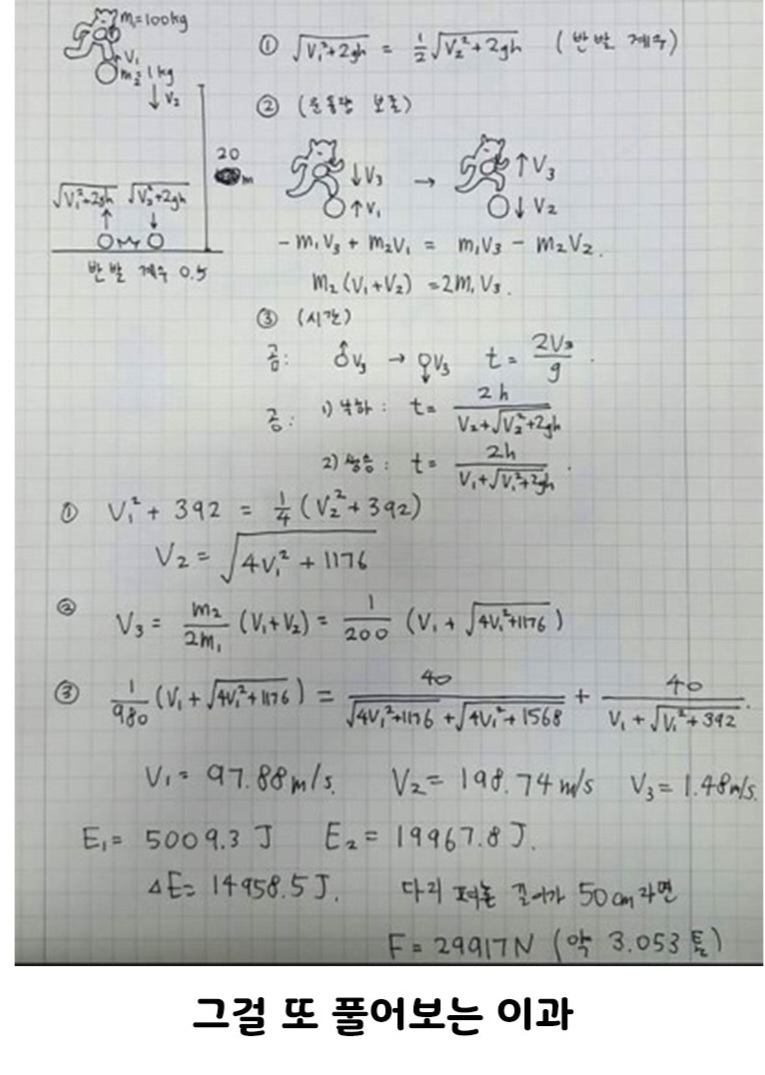 m₁=100kg
V₁
m₂=1kg
↓V₂
20 m
√V₁²+2gh √V₂²+2gh
반발 계수 0.5
① √V₁²+2gh = ½√V₂²+2gh (반발 계수)
② (운동량 보존)
↓V₃ → ↑V₃
↑V₁ ↓V₂
-m₁V₃ + m₂V₁ = m₁V₃ - m₂V₂.
m₂(V₁+V₂) = 2m₁V₃.
③ (시간)
곰: ↑V₃ → ↓V₃ t = 2V₃/g.
공: 1) 낙하: t = 2h/(V₂+√V₂²+2gh)
2) 상승: t = 2h/(V₁+√V₁²+2gh).
① V₁² + 392 = ¼(V₂²+392)
V₂ = √4V₁²+1176
② V₃ = m₂/2m₁ (V₁+V₂) = 1/200 (V₁+√4V₁²+1176)
③ 1/980 (V₁+√4V₁²+1176) = 40/(√4V₁²+1176+√4V₁²+1568) + 40/(V₁+√V₁²+392).
V₁= 97.88m/s. V₂= 198.74 m/s V₃= 1.48m/s.
E₁= 5009.3 J E₂= 19967.8 J.
△E= 14958.5 J. 다리 펴는 길이가 50cm라면
F = 29917N (약 3.053톤)
그걸 또 풀어보는 이과